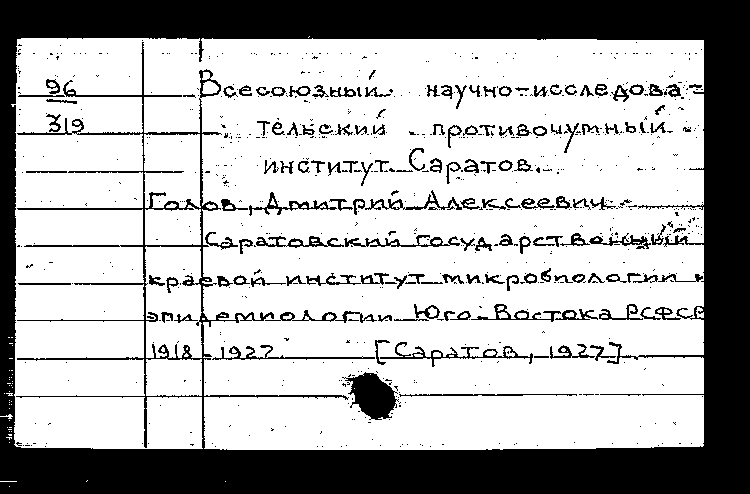 96 Всесоюзный научно-исследова=
319 тельский противочумный
институт. Саратов.
Голов, Дмитрий Алексеевич
Саратовский государственный
краевой институт микробиологии и
эпидемиологии Юго-Востока РСФСР
1918-1927. [Саратов, 1927].